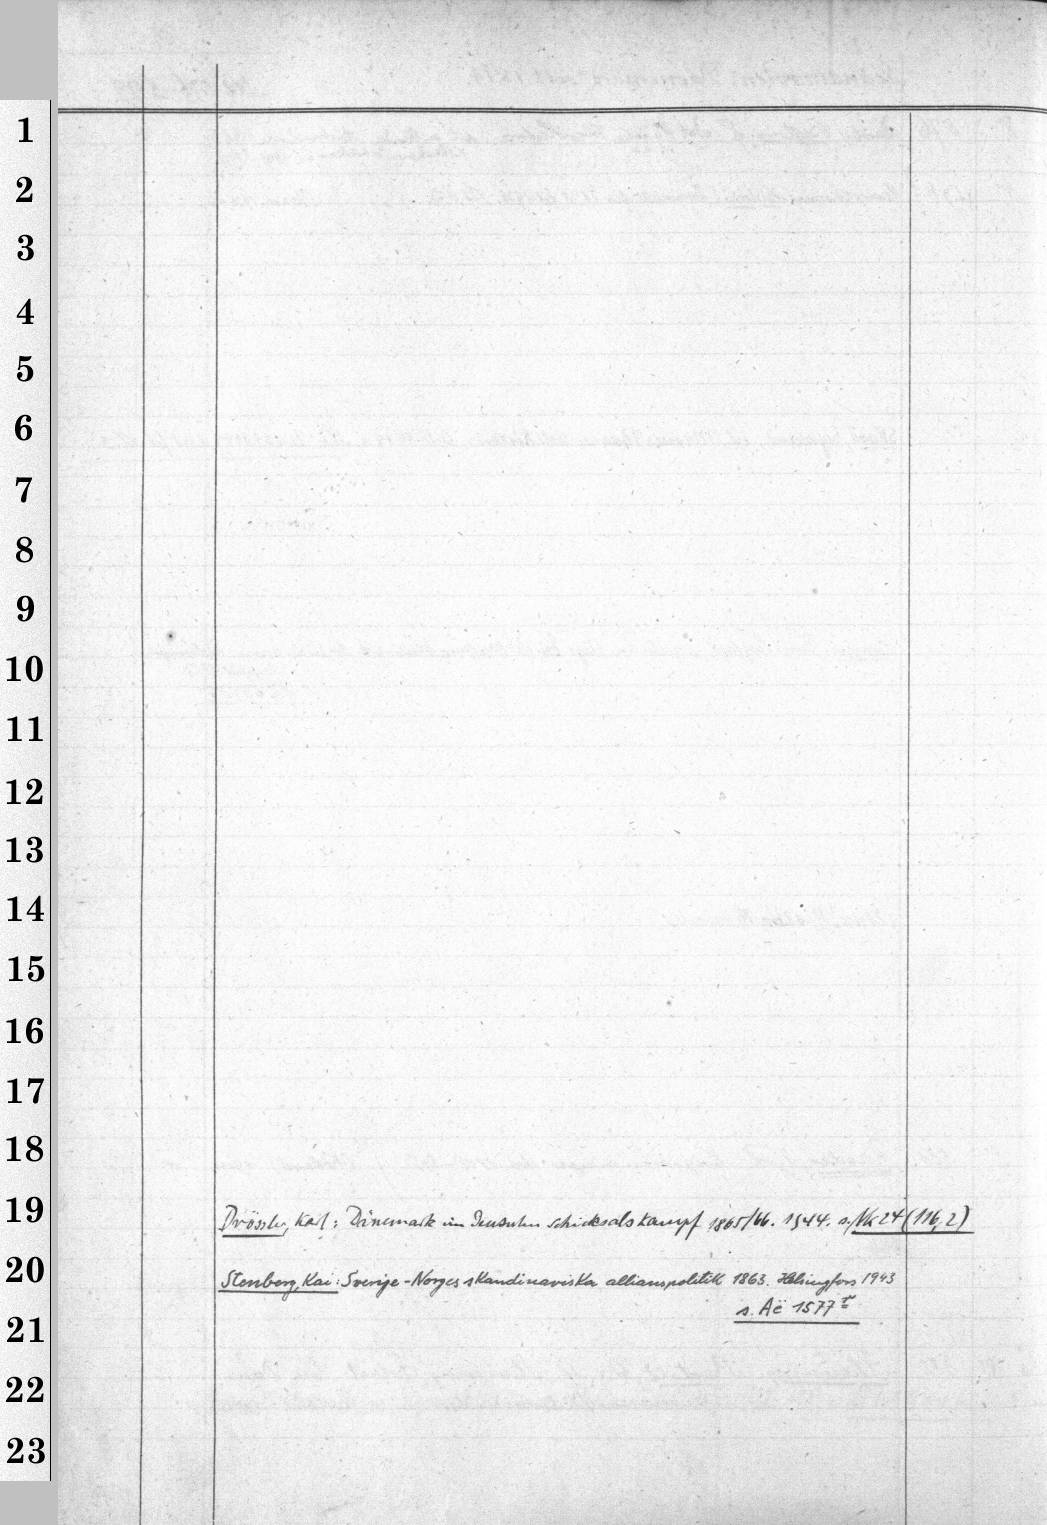 1
2
3
4
5
6
7
8
9
10
11
12
13
14
15
16
17
18
19
Drössler, Karl: Dänemark im Deutschen Schicksalskampf 1865/66. 1944. s. Nk 24 (116,2)
20
Stenberg, Kai: Sverige-Norges skandinaviska allianspolitik 1863. Helsingfors 1943
s. Aë 1577
21
22
23